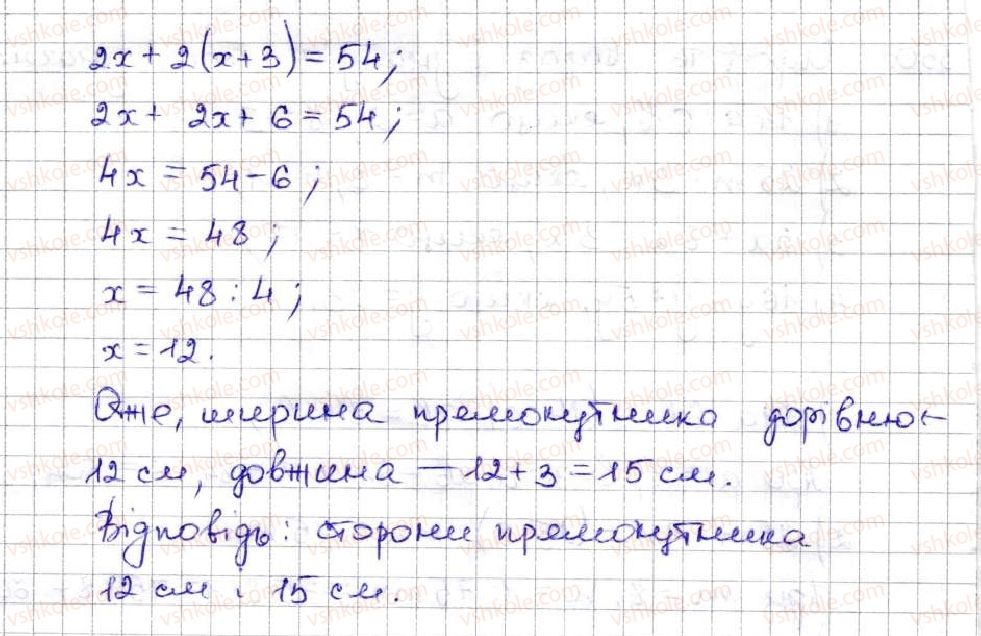 2x + 2(x+3) = 54;
2x + 2x + 6 = 54;
4x = 54 - 6;
4x = 48;
x = 48 : 4;
x = 12.
Отже, ширина прямокутника дорівнює
12 см, довжина — 12 + 3 = 15 см.
Відповідь: сторони прямокутника
12 см і 15 см.
vshkole.com